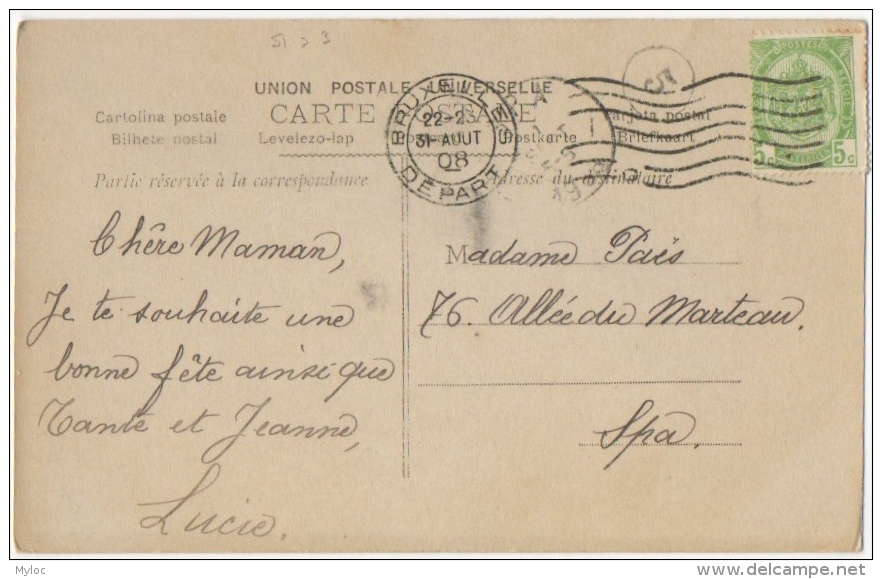 51 > 3
UNION POSTALE UNIVERSELLE
Cartolina postale
CARTE POSTALE
Bilhete postal
Levelezo-lap
Postkarte
Briefkaart
Partie réservée à la correspondance
Adresse du destinataire
BRUXELLES
22-23
31-AOUT
08
DEPART
5
POSTES
5c 5c
Chère Maman,
Je te souhaite une
bonne fête ainsi que
Tante et Jeanne,
Lucie.
Madame Païs
76. Allée du Marteau.
Spa.
Myloc
www.delcampe.net